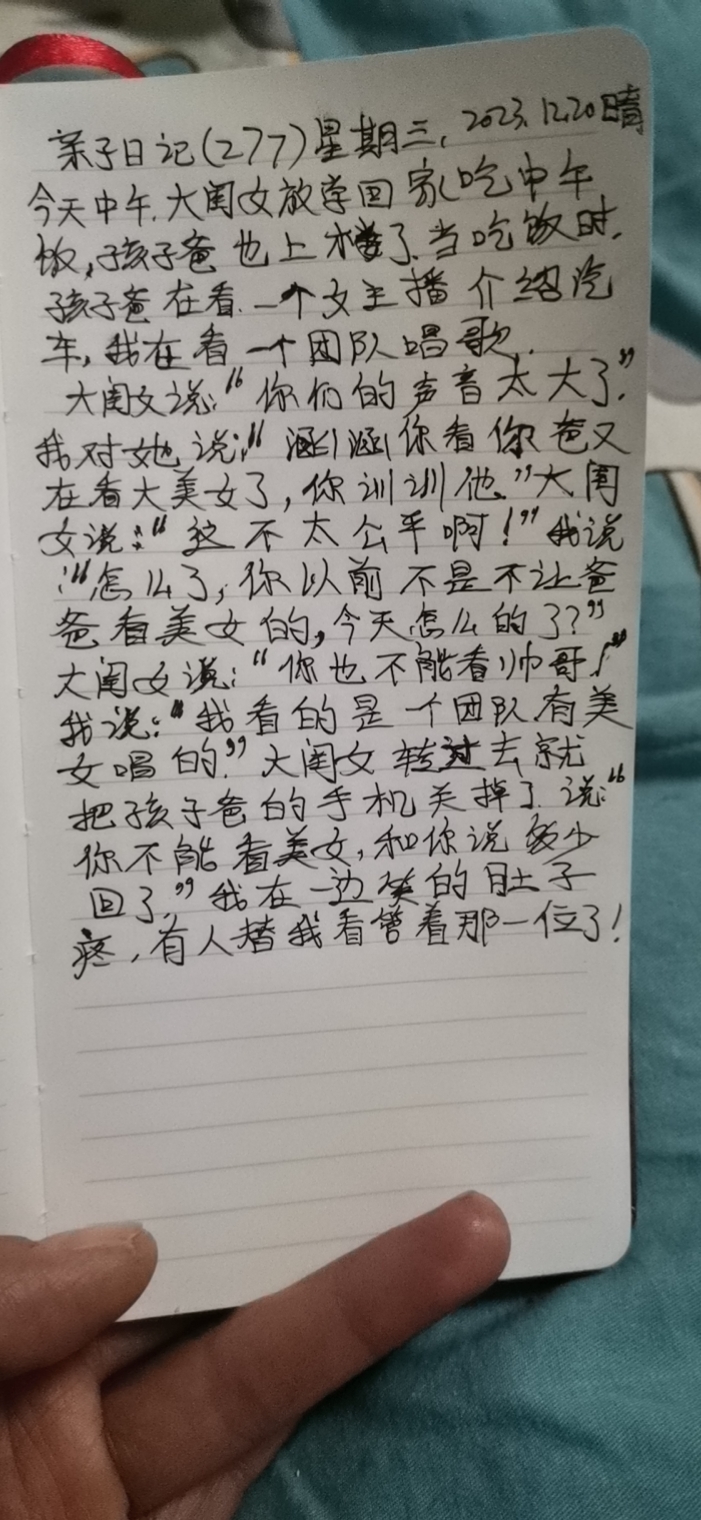 亲子日记(277)星期三,2023.12.20晴
今天中午.大闺女放学回家吃中午
饭,孩子爸也上楼了.当吃饭时.
孩子爸在看.一个女主播介绍汽
车,我在看一个团队唱歌.
大闺女说:“你们的声音太大了.”
我对她说:“涵涵你看你爸又
在看大美女了,你训训他.”大闺
女说:“这不太公平啊!”我说
:“怎么了,你以前不是不让爸
爸看美女的,今天怎么的了?”
大闺女说:“你也不能看帅哥!”
我说:“我看的是一个团队有美
女唱的.”大闺女转过去就
把孩子爸的手机关掉了.说:“
你不能看美女,和你说多少
回了.”我在一边笑的肚子
疼.有人替我看管着那一位了!